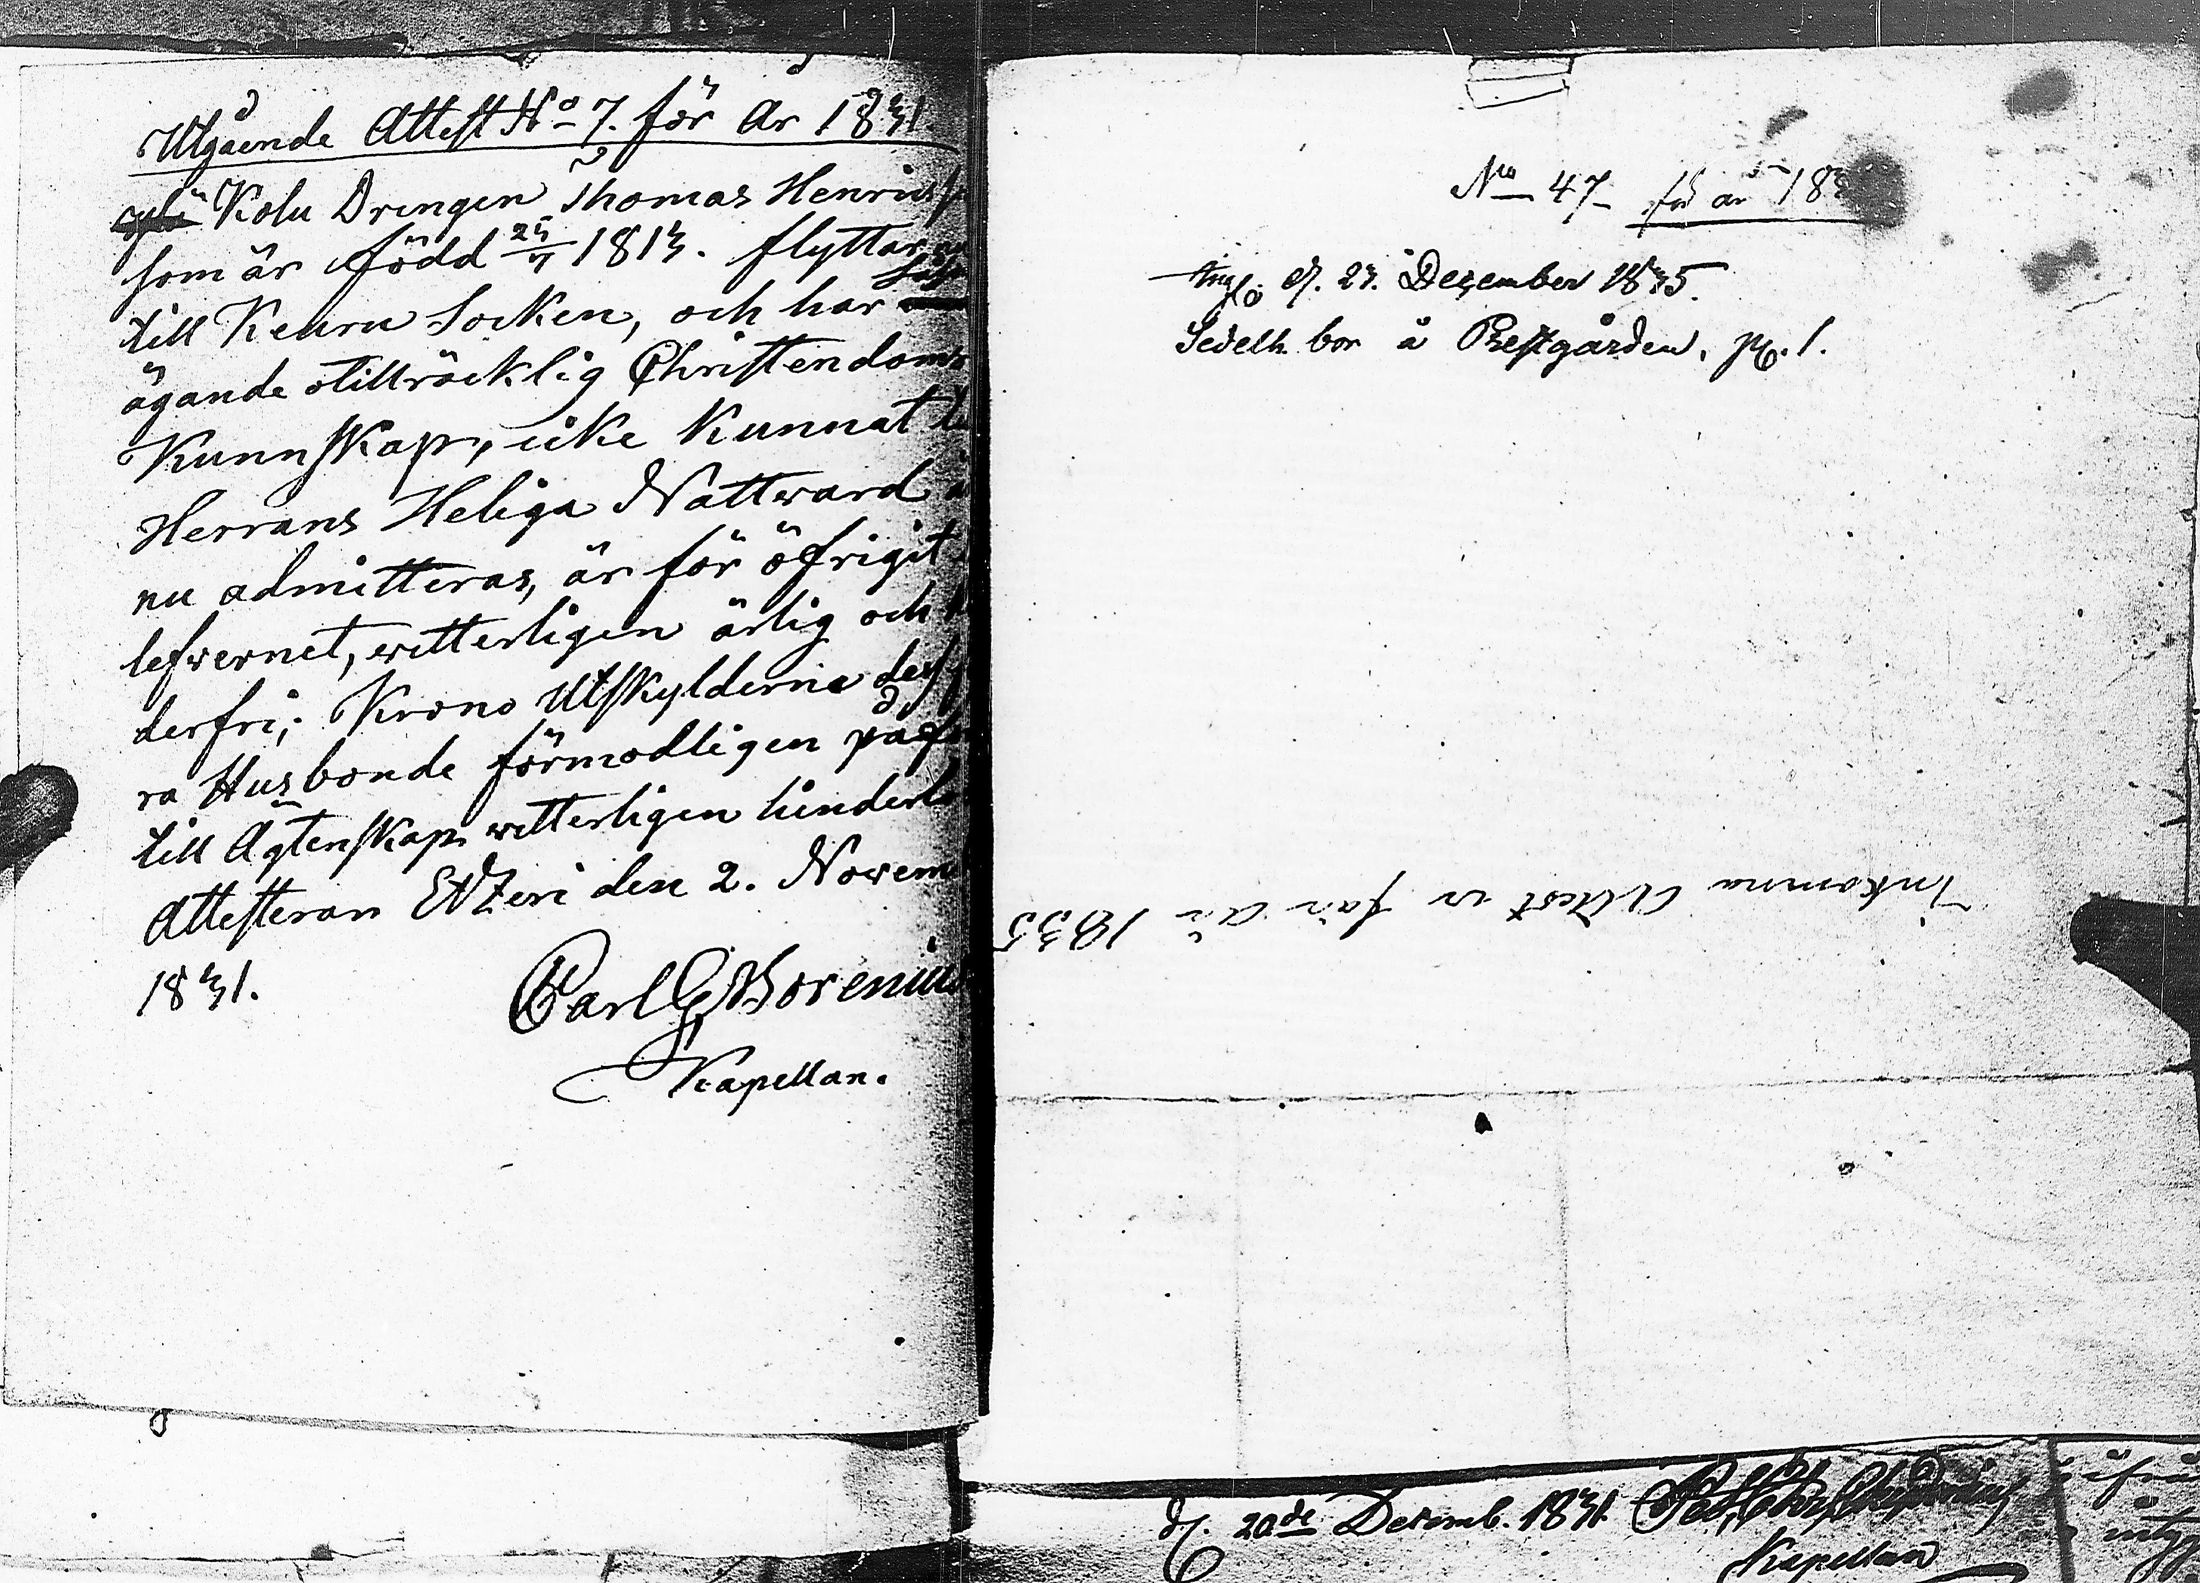 Utgående Attest No 7. för År 1831.
Kolu Drengen Thomas Henrics
som är född 23/7 1813. flyttar
till Keuru Socken, och har
ägande otillräcklig Christendoms
Kunnskap, icke kunnat
Herrans Heliga Nattward
nu admitteras, är för öfrigit
lefwernet, witterligen ärlig och
derfri; Krono Utskylderne
ra Husbonde förmodligen
till Ägtenskap witterligen
Attesteran Etzeri den 2. Novem
1831.
Carl G Borenius
Kapellan.
No 47 för år 18
d. 23. December 1835.
Sedelh. bor å Prestgården, pg. 1.
Inkomna Attest er för År 1835
d. 20de Decemb. 1831.
Kapellan